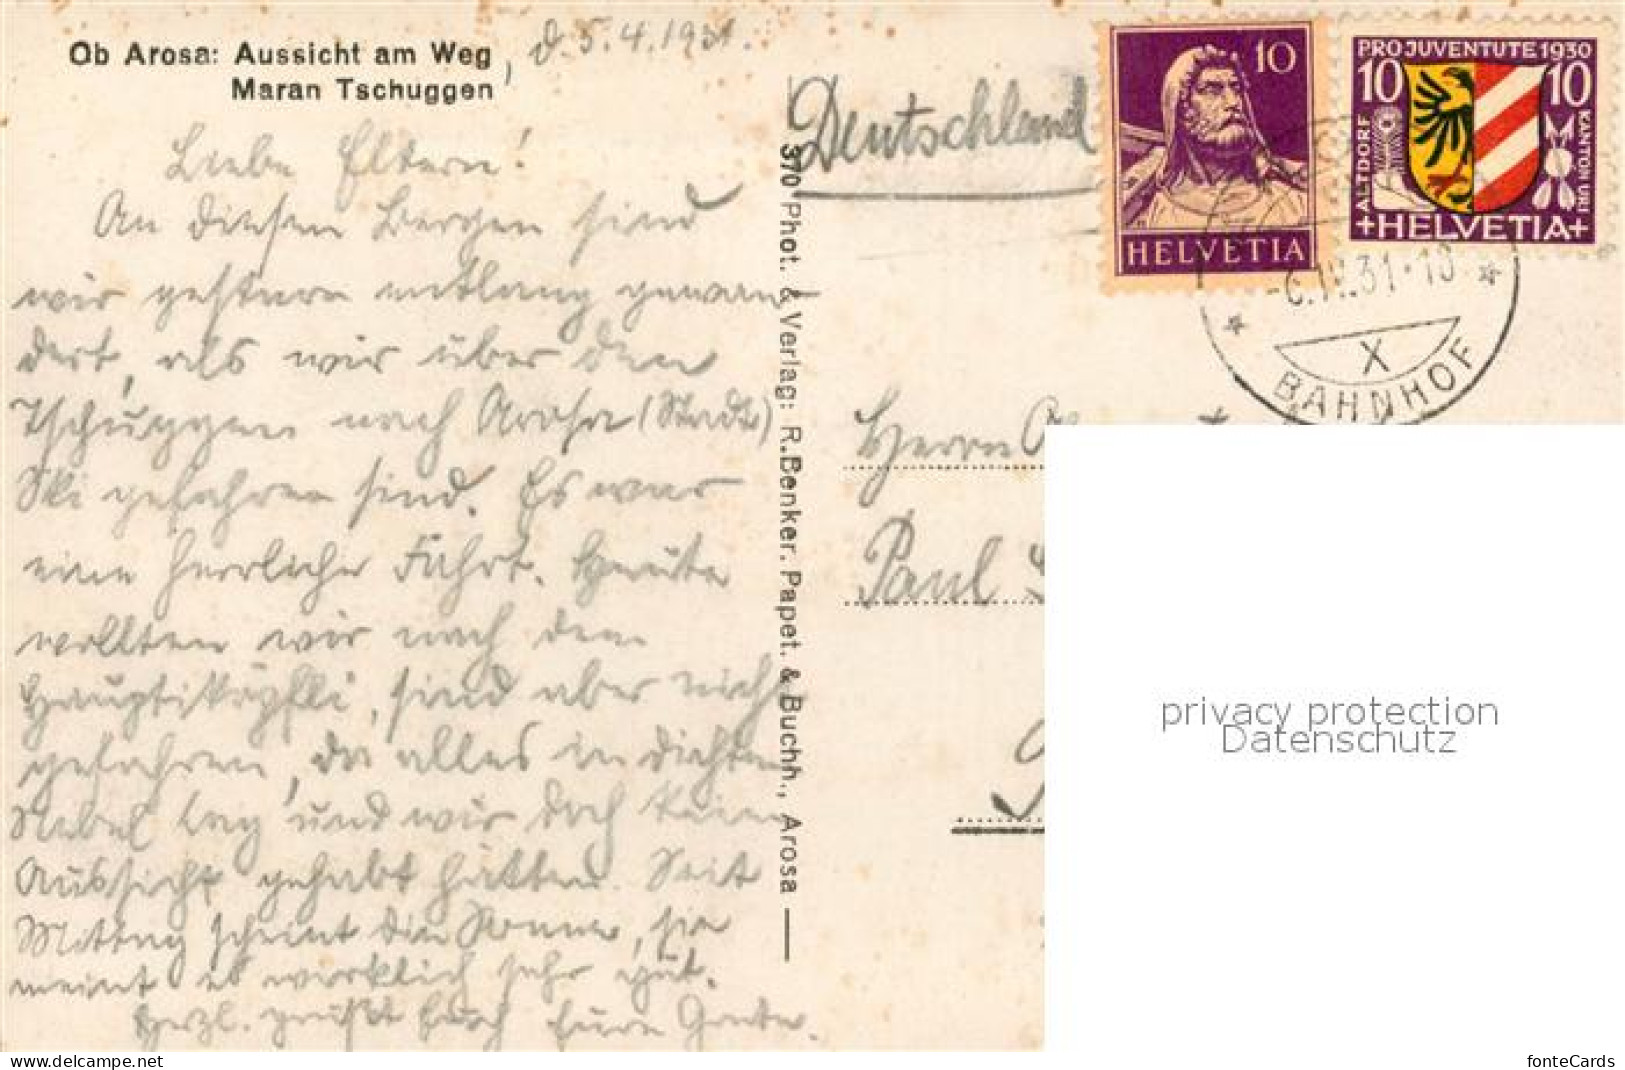 Ob Arosa: Aussicht am Weg, d. 5.4.1931.
Maran Tschuggen
Liebe Eltern!
An diesen Bergen sind
wir gestern entlang gewan-
dert, als wir über den
Tschuggen nach Arosa (Stadt)
Ski gefahren sind. Es war
eine herrliche Fahrt. Heute
wollten wir nach dem
sind aber nicht
gefahren, da alles in dichtem
Nebel lag und wir doch keine
Aussicht gehabt hätten. Seit
Mittag scheint die Sonne, sie
meint es wirklich sehr gut.
Herzl. grüßt Euch Eure
370 Phot. & Verlag: R. Benker. Papet. & Buchh., Arosa
Deutschland
10
HELVETIA
PRO JUVENTUTE 1930
10 10
ALTDORF
KANTON URI
+HELVETIA+
-6.IV.31-10
X
BAHNHOF
Herrn
Paul
privacy protection
Datenschutz
www.delcampe.net
fonteCards